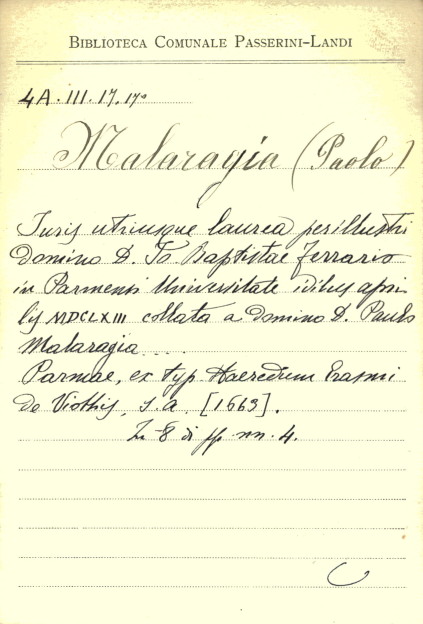 BIBLIOTECA COMUNALE PASSERINI-LANDI
4A.III.17.17°
Malaragia (Paolo)
Juris utriusque laurea perillustri
domino D. Jo Baptistae Ferrario
in Parmensi Universitate idibus apri-
lis MDCLXIII collata a domino D. Paulo
Malaragia ....
Parmae, ex typ. Haeredum Erasmi
de Viothis, s.a. [1663].
In 8 di pp. nn. 4.